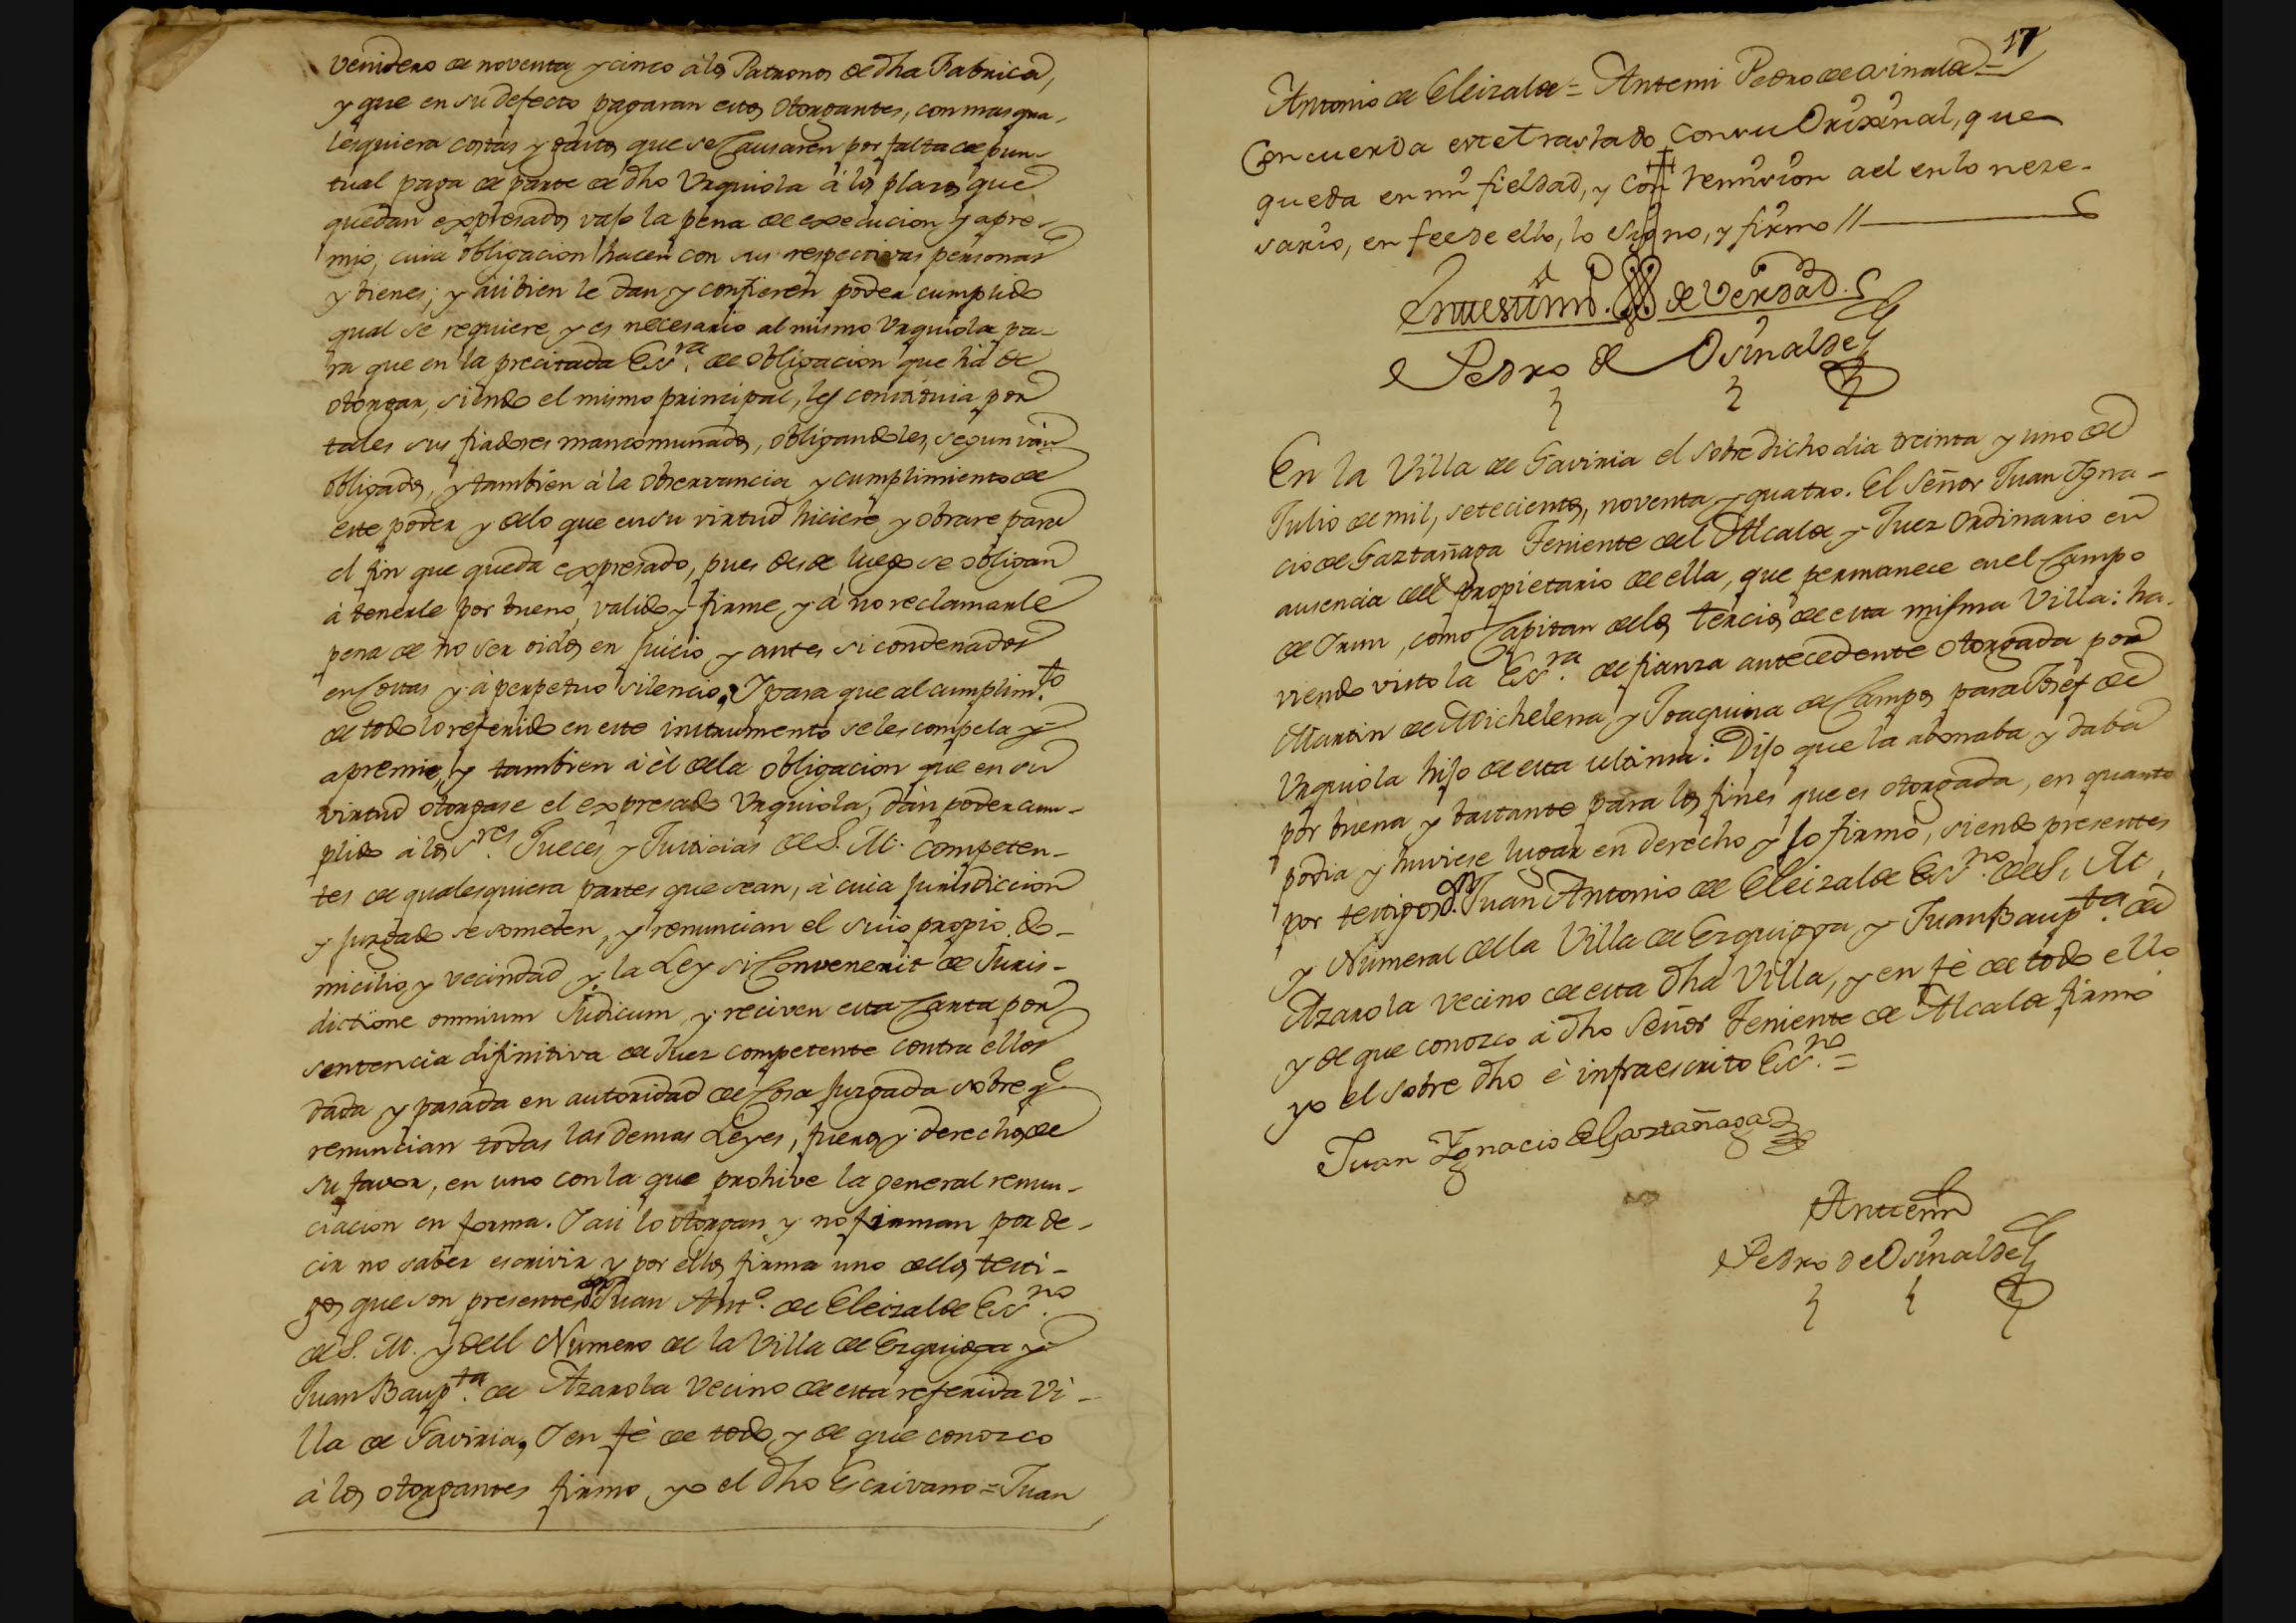 venidero de noventa y cinco à los Patronos de dha Fabrica,
y que en su defecto pagaran estos otorgantes, con mas qua-
lesquiera costas y gastos que se Causaren por falta de pun-
tual paga de parte de dho Urquiola à los plazos que
quedan expresados vajo la pena de execucion y apre-
mio, cuia obligacion hacen con sus respectivas personas
y bienes; y asibien le dan y confieren poder cumplido
qual se requiere y es necesario al mismo Urquiola pa-
ra que en la precitada Esra. de obligacion que hà de
otorgar, siendo el mismo principal, les constituia por
tales sus fiadores mancomunados, obligandoles, segun ván
obligados, y tambien à la observancia y cumplimiento de
este poder y de lo que en su virtud hiciere y obrare para
el fin que queda expresado, pues desde luego se obligan
à tenerle por bueno, valido y firme, y à no reclamarle
pena de no ser oidos en juicio y antes si condenados
en Costas y à perpetuo silencio, Y para que al cumplimto.
de todo lo referido en este instrumento se les compela y
apremie, y tambien à èl de la obligacion que en su
virtud otorgase el expresado Urquiola, dàn poder cum-
plido à los Sres. Jueces y Justicias de S. M. competen-
tes de qualesquiera partes que sean, à cuia jurisdiccion
y juzgado se someten, y renuncian el suio propio do-
micilio y vecindad y la Ley si Convenerit de Juris-
dictione omnium Judicum, y reciven esta Carta por
sentencia difinitiva de Juez competente contra ellos
dada y pasada en autoridad de Cosa juzgada sobre qe.
renuncian todas las demas Leyes, fueros y derechos de
su favor, en uno con la que prohive la general renun-
ciacion en forma. Y asi lo otorgan y no firman por de-
cir no saber escrivir y por ellos firma uno de los testi-
gos que son presentes Dn. Juan Anto. de Eleizalde Esno.
de S. M. y del Numero de la Villa de Ezquioga y
Juan Baupta. de Azarola vecino de esta referida Vi-
lla de Gaviria, Y en fè de todo y de que conozco
à los otorgantes firmo yo el dho Escrivano = Juan
17
Antonio de Eleizalde = Antemi Pedro de Osinalde =
Concuerda este traslado con su Orixinal, que
queda en mi fieldad, y con remision a el en lo neze-
sario, en fee de ello, lo Signo, y firmo //
En testimo. de Verdad.
Pedro de Osinalde
En la Villa de Gaviria el sobre dicho dia treinta y uno de
Julio de mil, setecientos, noventa y quatro. El Señor Juan Igna-
cio de Gaztañaga Teniente del Alcalde y Juez Ordinario en
ausencia del propietario de ella, que permanece en el Campo
de Irun, como Capitan de los tercios de esta misma Villa: ha-
viendo visto la Esra. de fianza antecedente otorgada por
Martin de Michelena, y Joaquina de Campos para Josef de
Urquiola hijo de esta ultima: Dijo que la abonaba y daba
por buena y bastante para los fines que es otorgada, en quanto
podia y huviese lugar en derecho y lo firmò, siendo presentes
por testigos Dn. Juan Antonio de Eleizalde Esno. de S. M.,
y Numeral de la Villa de Ezquioga, y Juan Baupta. de
Azarola vecino de esta dha Villa, y en fè de todo ello
y de que conozco à dho Señor Teniente de Alcalde firmo
yo el sobre dho è infraescrito Esno. =
Juan Ygnacio de Gaztañaga
Antemi
Pedro de Osinalde